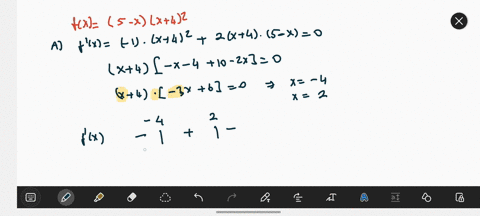 f(x) = (5-x)(x+4)²
A) f'(x) = (-1)·(x+4)² + 2(x+4)·(5-x) = 0
(x+4)[-x-4+10-2x] = 0
(x+4)·[-3x+6] = 0 ⇒ x = -4
x = 2
-4 2
f'(x) - | + | -